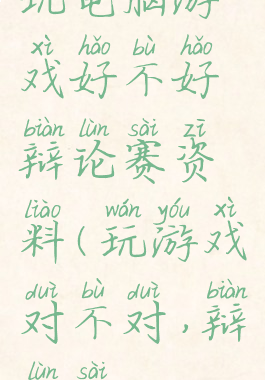 玩电脑游
xì hǎo bù hǎo
戏好不好
biàn lùn sài zī
辩论赛资
liào wán yóu xì
料(玩游戏
duì bù duì biàn
对不对,辩
lùn sài